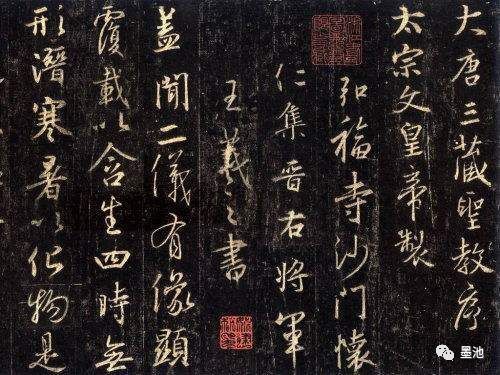 大唐三藏聖教序
太宗文皇帝製
弘福寺沙門懷
仁集晉右將軍
王羲之書
蓋聞二儀有像顯
覆載以含生四時無
形潛寒暑以化物是
墨池